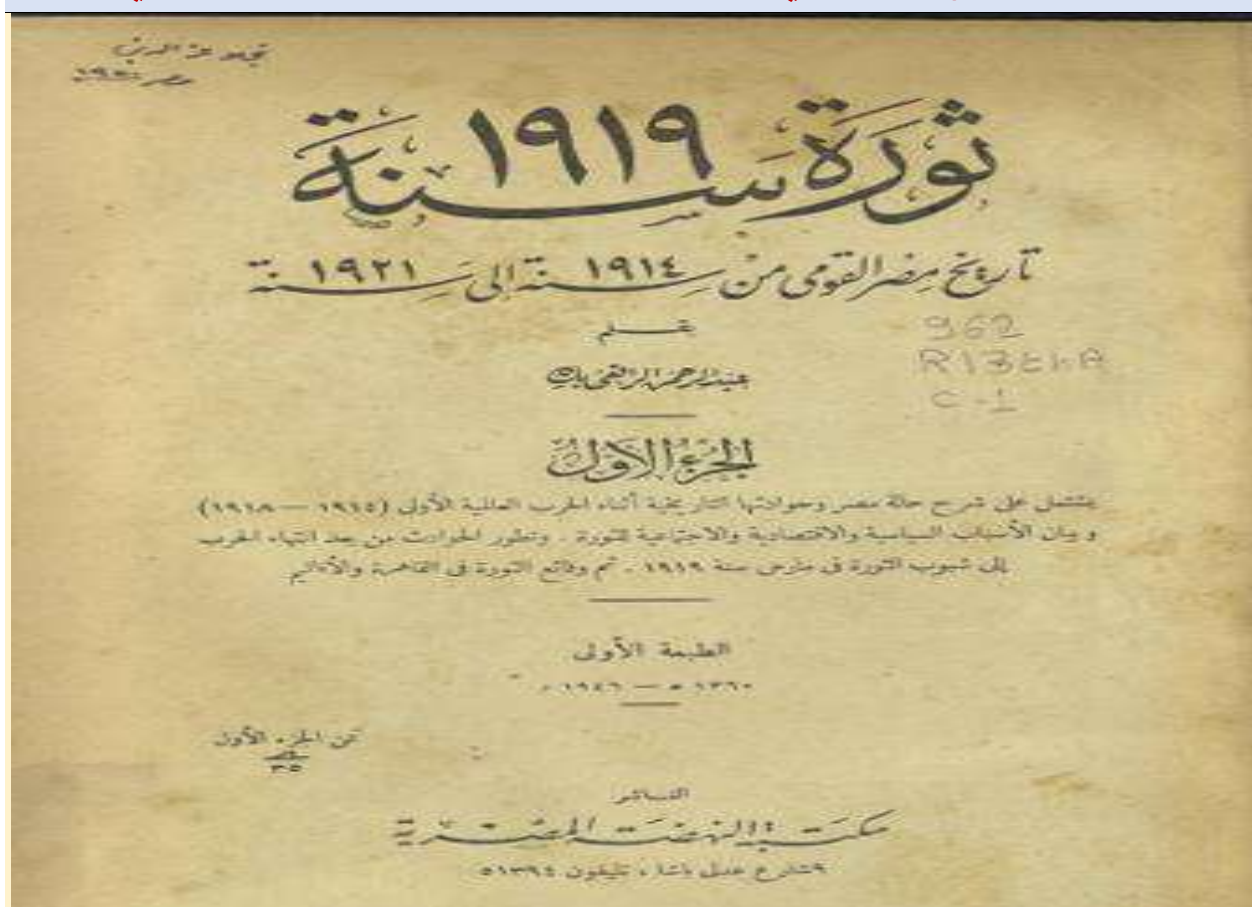 ثورة سنة ١٩١٩
تاريخ مصر القومى من سنة ١٩١٤ إلى سنة ١٩٢١
بقلم
عبد الرحمن الرافعى بك
962
R13
C-1
الجزء الأول
يشتمل على شرح حالة مصر وحوادثها التاريخية أثناء الحرب العالمية الأولى (١٩١٤ — ١٩١٨)
وبيان الأسباب السياسية والاقتصادية والاجتماعية للثورة . وتطور الحوادث من بعد انتهاء الحرب
إلى شبوب الثورة فى مارس سنة ١٩١٩ . ثم وقائع الثورة فى القاهرة والأقاليم
الطبعة الأولى
— ١٩٤٦
ثمن الجزء الأول
٣٥
الناشر
مكتبة النهضة المصرية
٩ شارع عدلى باشا ، تليفون ٥١٣٩٤